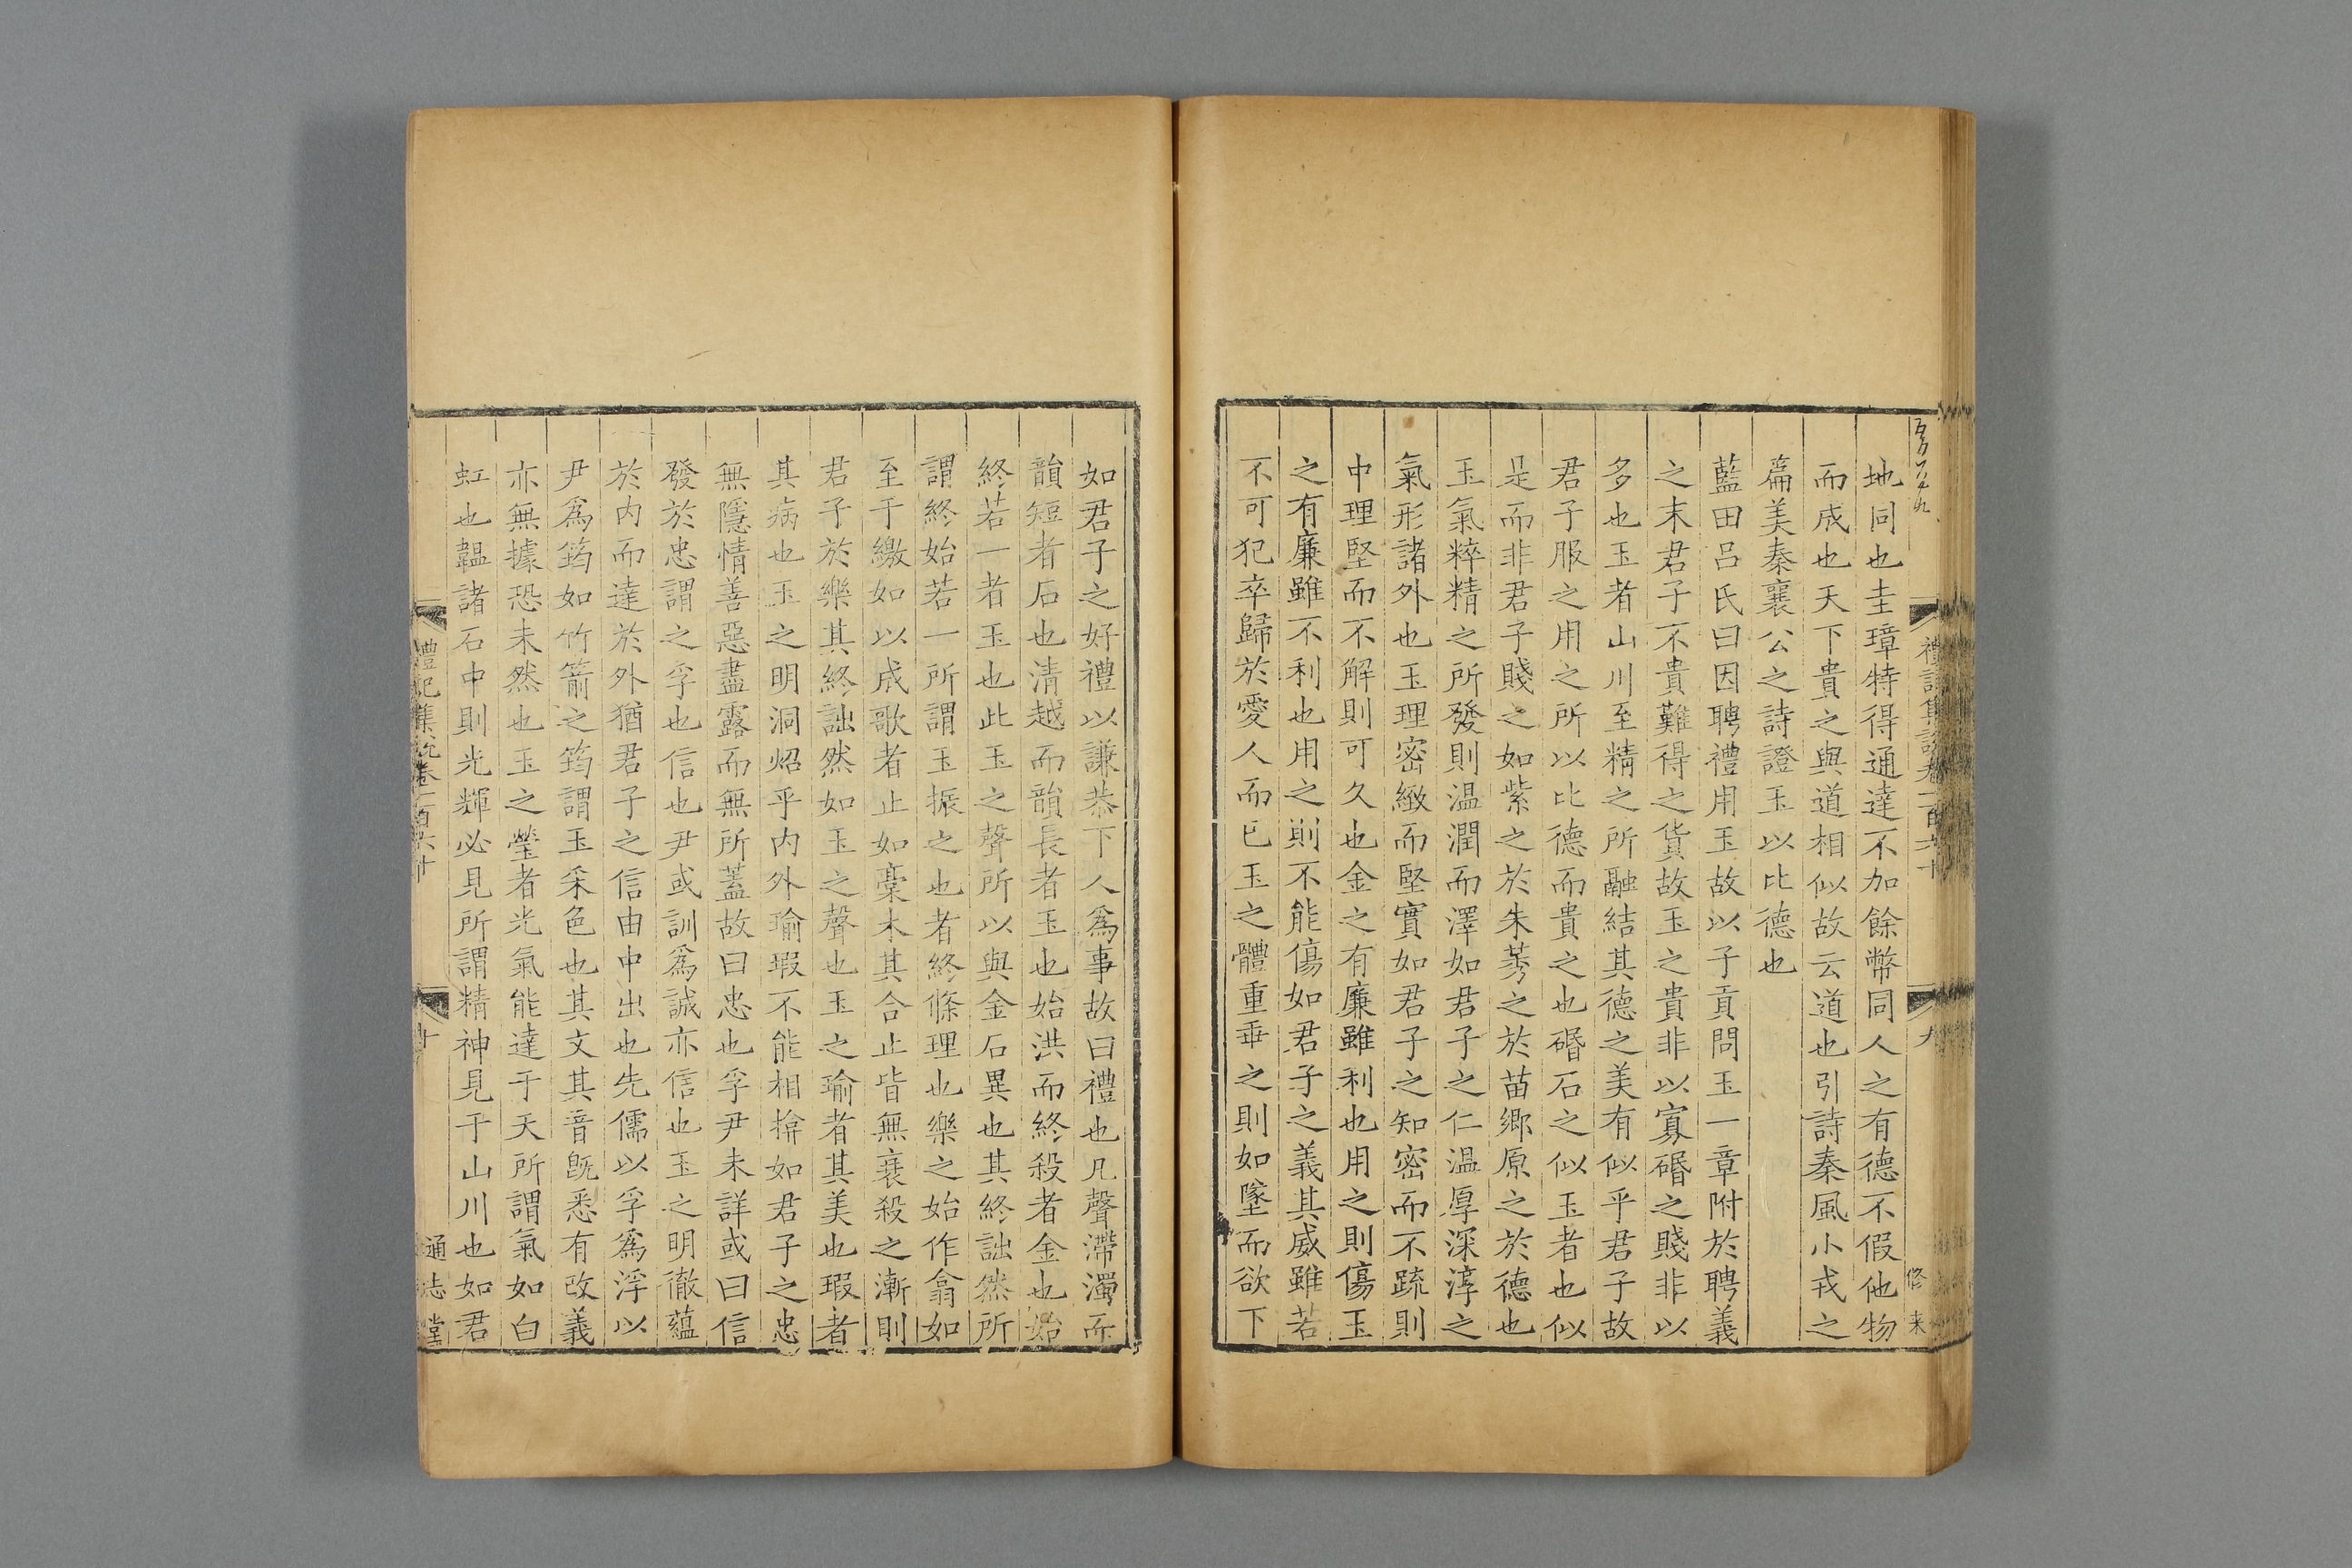 禮記集說卷一百六十
九
地同也圭璋特得通達不加餘幣同人之有德不假他物
而成也天下貴之與道相似故云道也引詩秦風小戎之
篇美秦襄公之詩證玉以比德也
藍田呂氏曰因聘禮用玉故以子貢問玉一章附於聘義
之末君子不貴難得之貨故玉之貴非以寡碈之賤非以
多也玉者山川至精之所融結其德之美有似乎君子故
君子服之用之所以比德而貴之也碈石之似玉者也似
是而非君子賤之如紫之於朱莠之於苗鄉原之於德也
玉氣粹精之所發則温潤而澤如君子之仁温厚深淳之
氣形諸外也玉理密緻而堅實如君子之知密而不疏則
中理堅而不解則可久也金之有廉雖利也用之則傷玉
之有廉雖不利也用之則不能傷如君子之義其威雖若
不可犯卒歸於愛人而已玉之體重垂之則如墜而欲下
如君子之好禮以謙恭下人爲事故曰禮也凡聲滯濁而
韻短者石也清越而韻長者玉也始洪而終殺者金也始
終若一者玉也此玉之聲所以與金石異也其終詘然所
謂終始若一所謂玉振之也者終條理也樂之始作翕如
至于繳如以成歌者止如槀木其合止皆無衰殺之漸則
君子於樂其終詘然如玉之聲也玉之瑜者其美也瑕者
其病也玉之明洞炤乎内外瑜瑕不能相揜如君子之忠
無隱情善惡盡露而無所蓋故曰忠也孚尹未詳或曰信
發於忠謂之孚也信也尹或訓爲誠亦信也玉之明徹蘊
於内而達於外猶君子之信由中出也先儒以孚爲浮以
尹爲筠如竹箭之筠謂玉采色也其文其音旣悉有改義
亦無據恐未然也玉之瑩者光氣能達于天所謂氣如白
虹也韞諸石中則光輝必見所謂精神見于山川也如君
禮記集說卷一百六十
十
通志堂